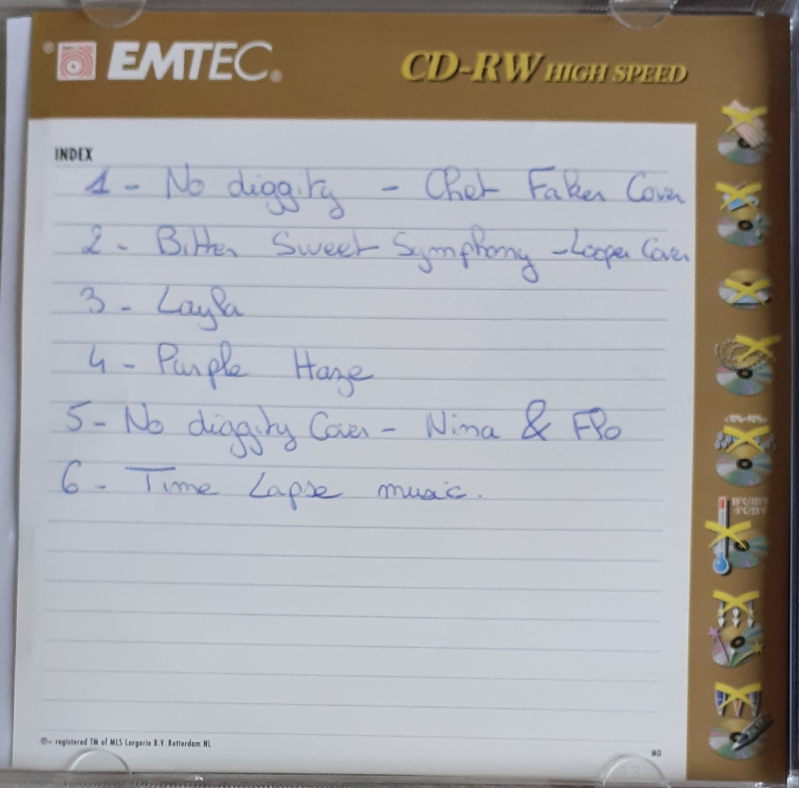 EMTEC®
CD-RW HIGH SPEED
INDEX
1 - No diggity - Chet Faker Cover
2 - Bitter Sweet Symphony - Looper Cover
3 - Layla
4 - Purple Haze
5 - No diggity Cover - Nina & Flo
6 - Time Lapse music.
®= registered TM of MLS Lorgerie B.V. Rotterdam NL